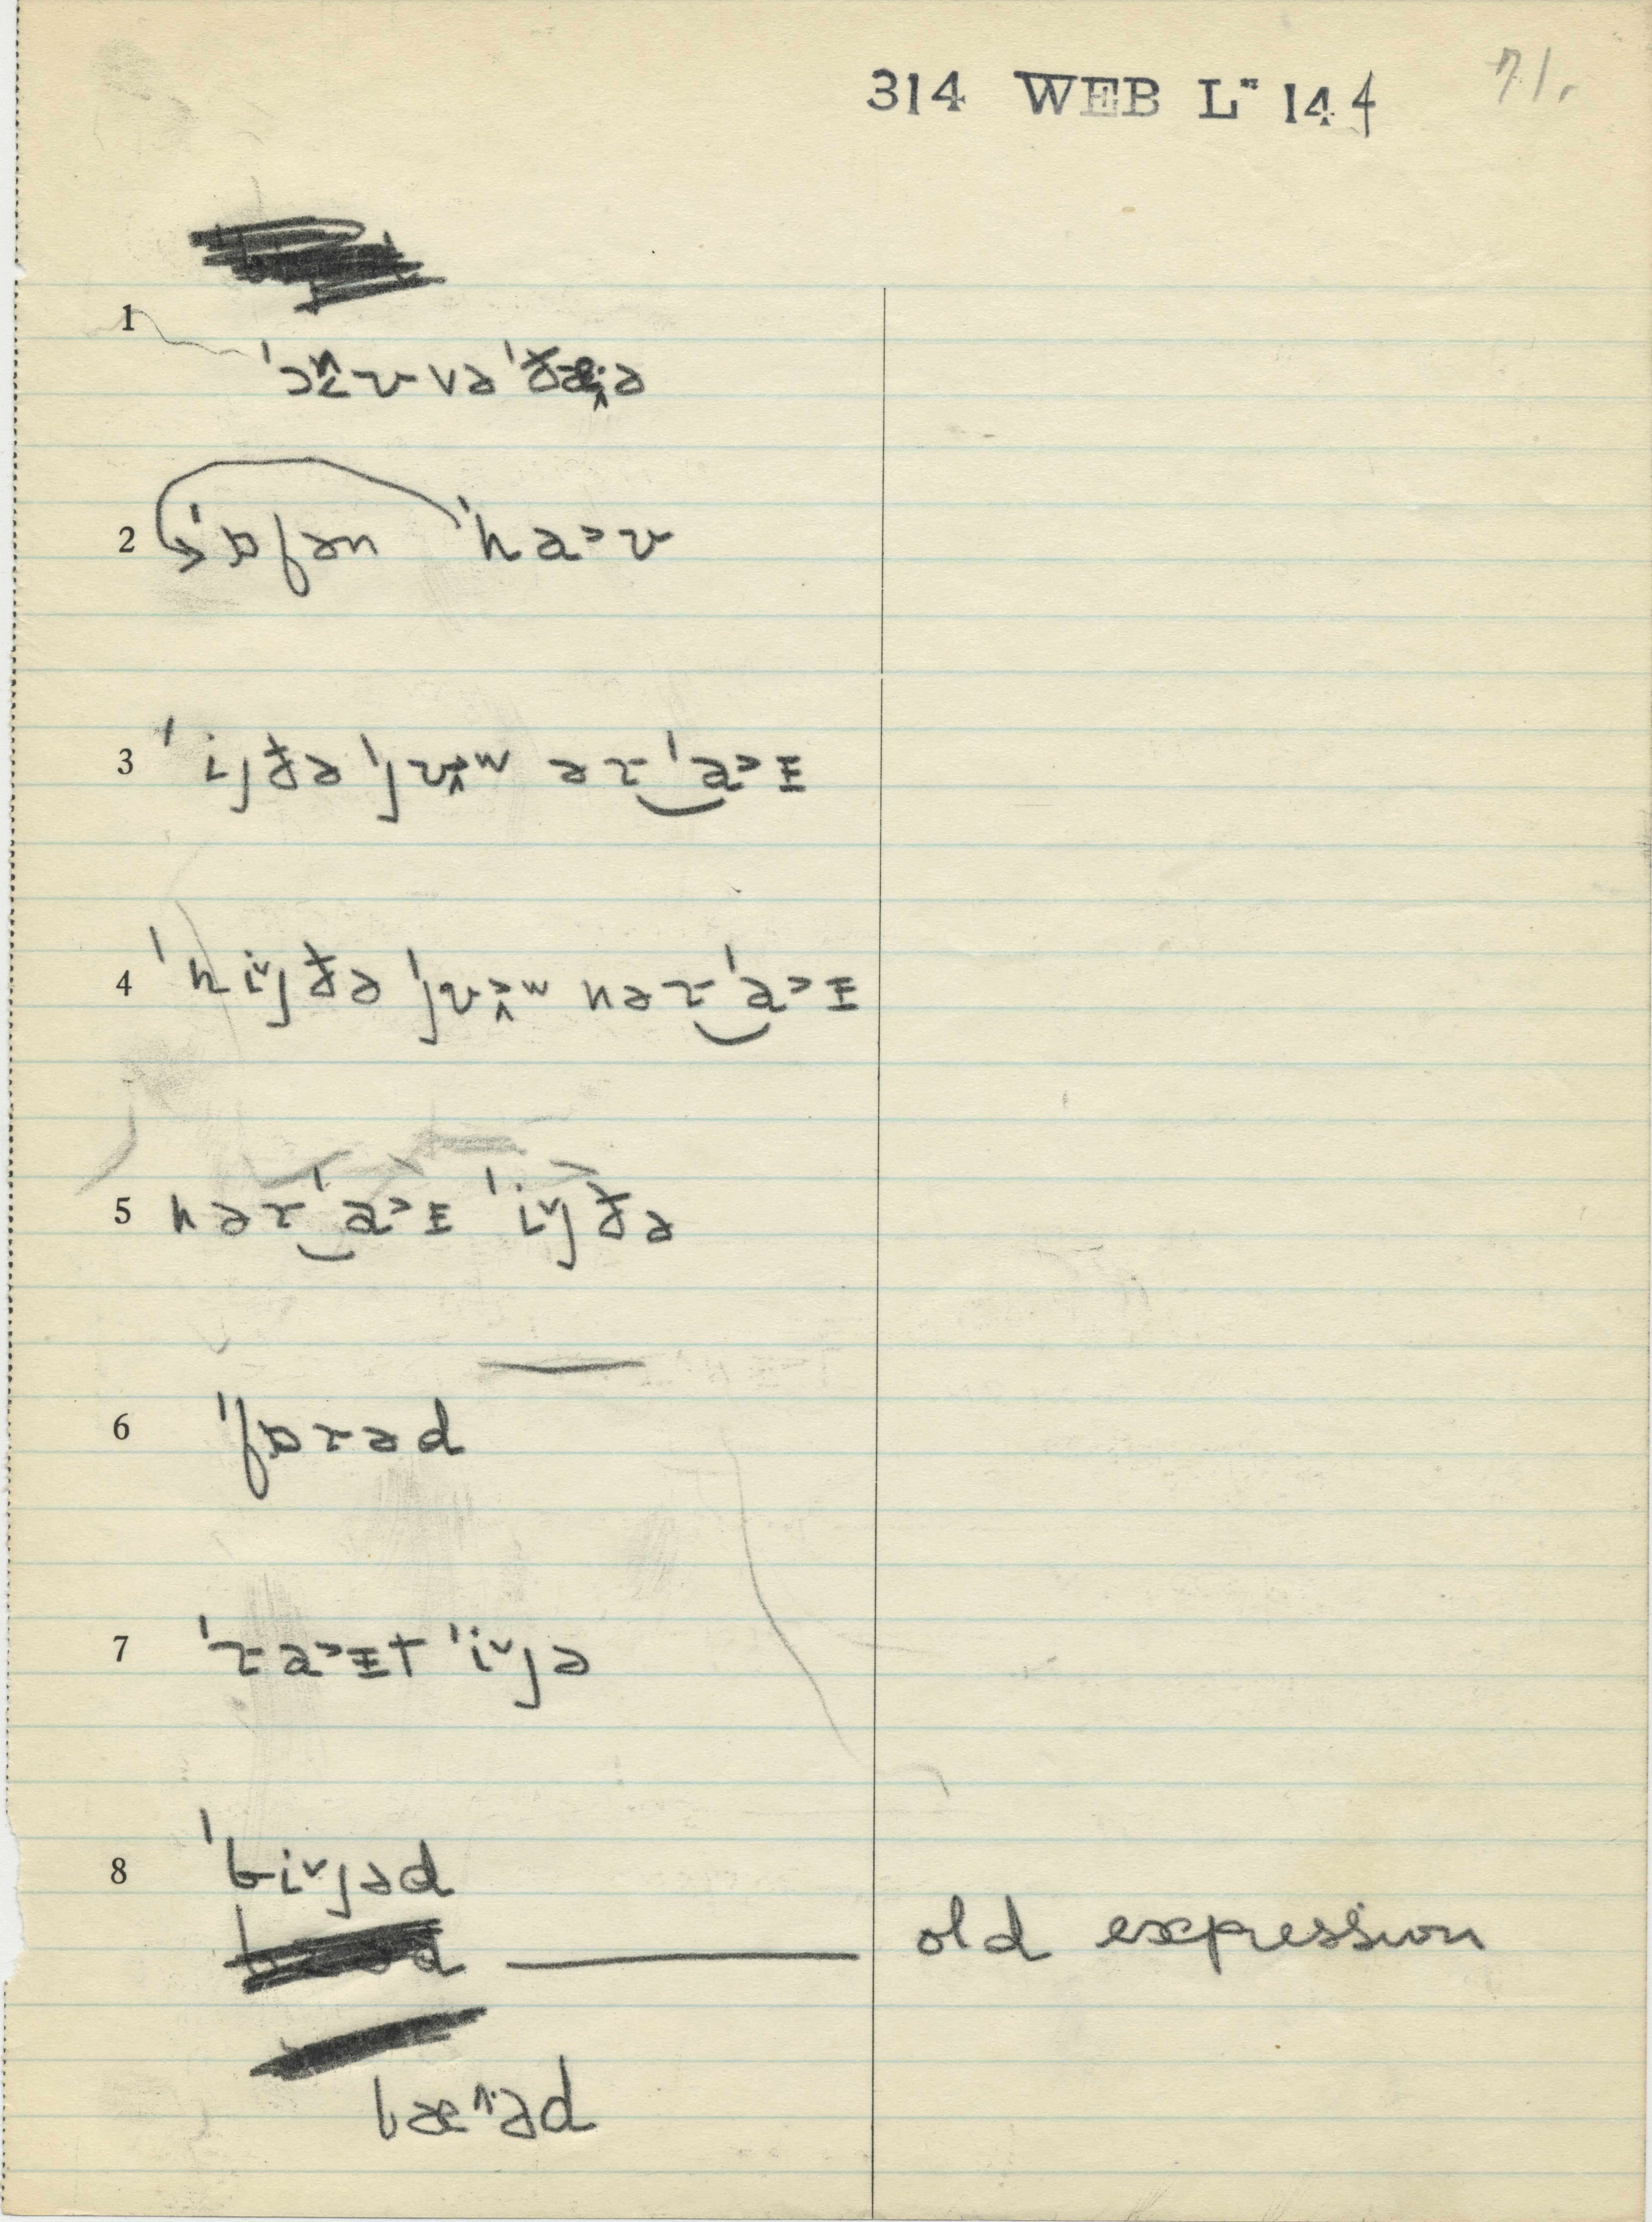 314 WEB L" 144 71.
1
ˈɔnʊ və ˈðæ·ə
2 ˈɒfən ˈhaʊ
3 ˈijðə ˈjʊ>ʷ əɾ‿ˈa>ɪ
4 ˈni˅jðə ˈjʊ>ʷ nəɾ‿ˈa>ɪ
5 nəɾ‿ˈa>ɪ ˈi˅jðə
6 ˈfɒɾəd
7 ˈɾa>ɪt ˈi˅jə
8 ˈbi˅jəd
old expression
bæ^·əd